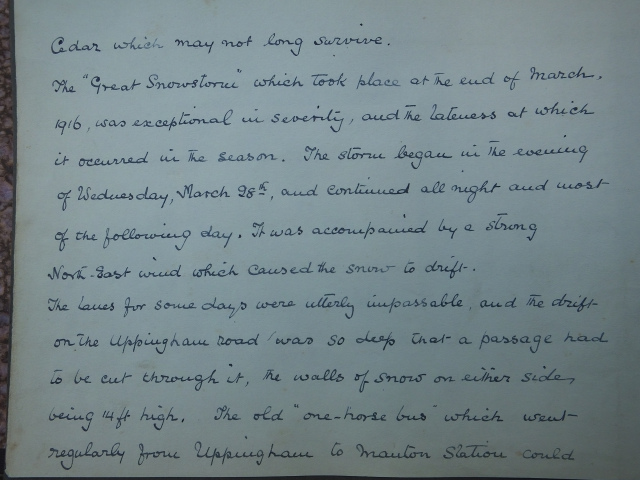 Cedar which may not long survive.
The "Great Snowstorm" which took place at the end of March,
1916, was exceptional in severity, and the lateness at which
it occurred in the season. The storm began in the evening
of Wednesday, March 28th, and continued all night and most
of the following day. It was accompanied by a strong
North-East wind which caused the snow to drift.
The lanes for some days were utterly impassable, and the drift
on the Uppingham road was so deep that a passage had
to be cut through it, the walls of snow on either side,
being 14ft high. The old "one-horse bus" which went
regularly from Uppingham to Manton Station could